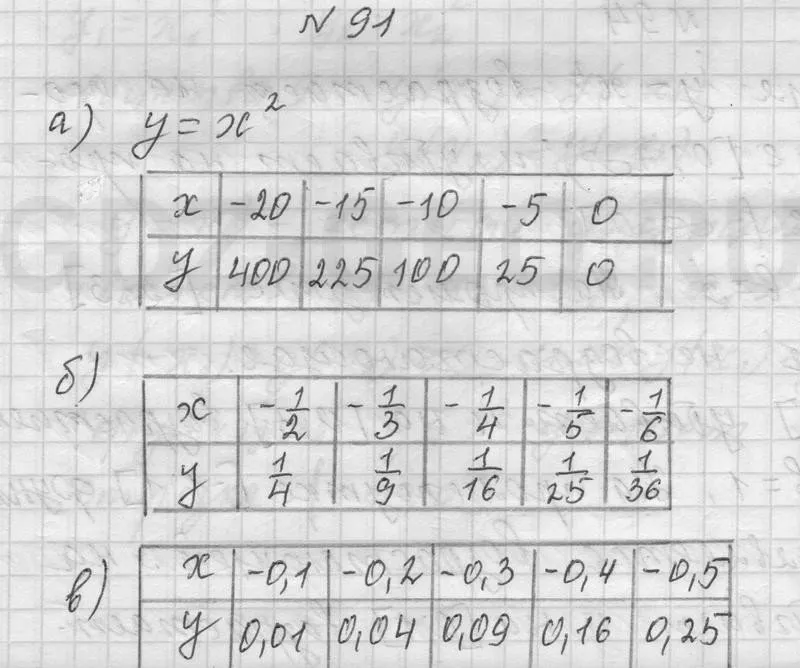 № 91
а) y = x²
x -20 -15 -10 -5 0
y 400 225 100 25 0
б)
x -1/2 -1/3 -1/4 -1/5 -1/6
y 1/4 1/9 1/16 1/25 1/36
в)
x -0,1 -0,2 -0,3 -0,4 -0,5
y 0,01 0,04 0,09 0,16 0,25